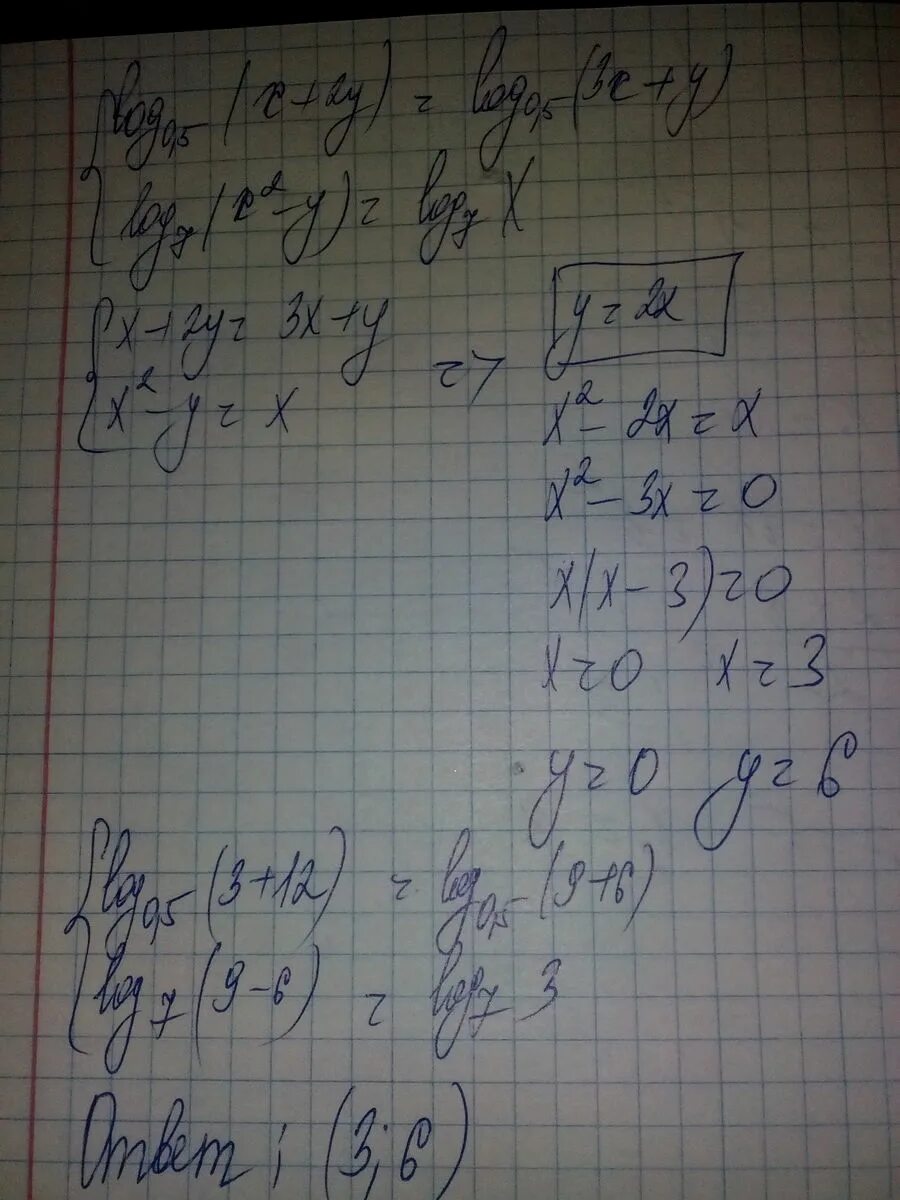 { log₀,₅ (x+2y) = log₀,₅ (3x+y)
log₇ (x² - y) = log₇ x
{ x+2y = 3x+y
x² - y = x
=>
y = 2x
x² - 2x = x
x² - 3x = 0
x(x - 3) = 0
x = 0 x = 3
y = 0 y = 6
{ log₀,₅ (3+12) = log₀,₅ (9+6)
log₇ (9-6) = log₇ 3
Ответ: (3; 6)